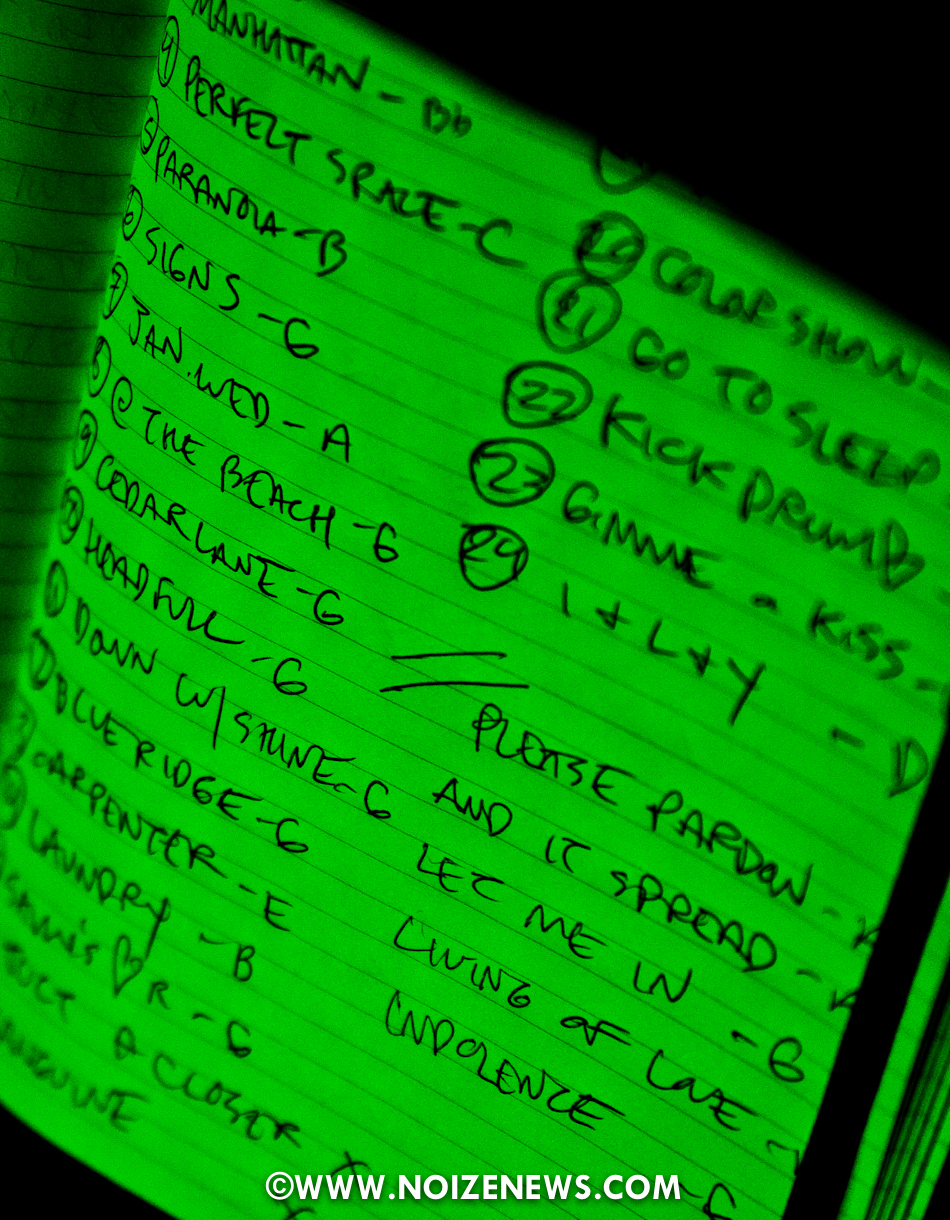 MANHATTAN - Bb
④ PERFECT SPACE - C
⑤ PARANOIA - B
⑥ SIGNS - G
⑦ JAN. WED - A
⑧ @ THE BEACH - G
⑨ CEDAR LANE - G
⑩ HEAD FULL - G
⑪ DOWN W/ SHINE - G
⑫ BLUE RIDGE - G
CARPENTER - E
LAUNDRY - B
♡ R - G
A CLOSER
⑳ COLOR SHOW -
㉑ GO TO SLEEP
㉒ KICK DRUM
㉓ GIMME A KISS -
㉔ I & L & Y - D
PLEASE PARDON -
AND IT SPREAD -
LET ME IN - G
LIVING OF LOVE -
INDOLENCE - G
©WWW.NOIZENEWS.COM